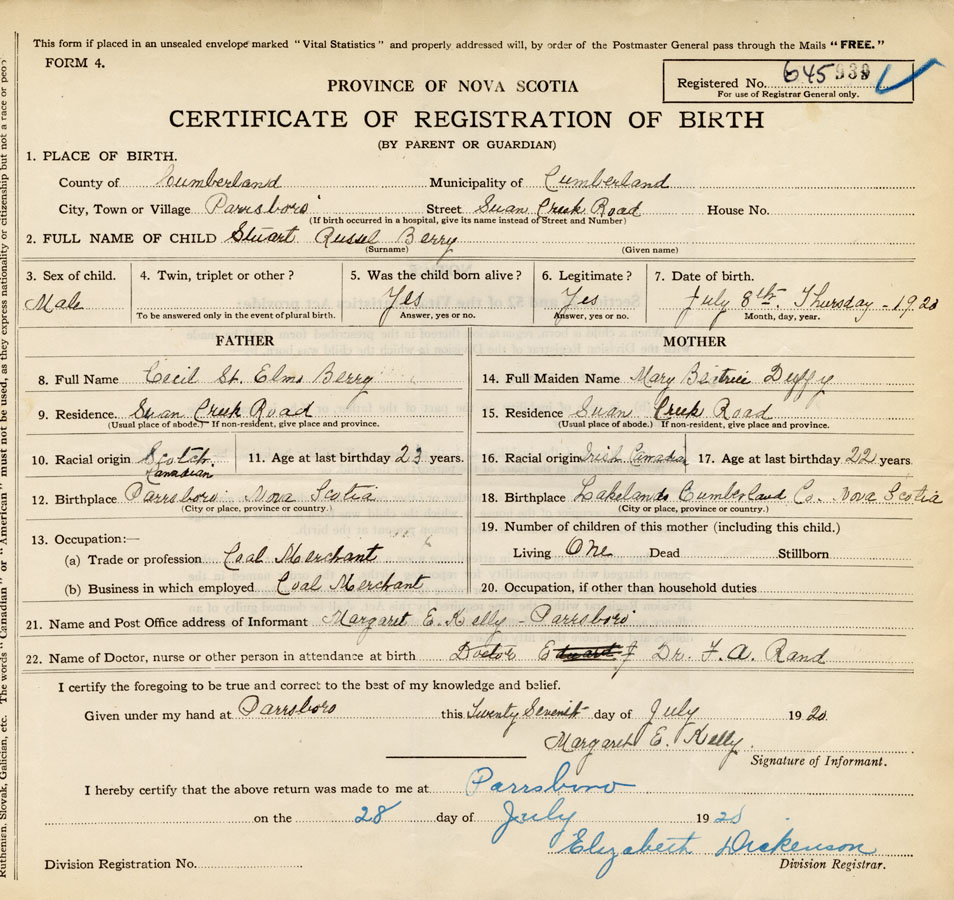 This form if placed in an unsealed envelope marked "Vital Statistics" and properly addressed will, by order of the Postmaster General pass through the Mails "FREE."
FORM 4.
Registered No. 645939
For use of Registrar General only.
PROVINCE OF NOVA SCOTIA
CERTIFICATE OF REGISTRATION OF BIRTH
(BY PARENT OR GUARDIAN)
1. PLACE OF BIRTH.
County of Cumberland Municipality of Cumberland
City, Town or Village Parrsboro Street Swan Creek Road House No.
(If birth occurred in a hospital, give its name instead of Street and Number)
2. FULL NAME OF CHILD Stuart Russel Berry
(Surname) (Given name)
3. Sex of child. 4. Twin, triplet or other? 5. Was the child born alive? 6. Legitimate? 7. Date of birth.
Male Yes Yes July 8th. Thursday - 1920
To be answered only in the event of plural birth. Answer, yes or no. Answer, yes or no. Month, day, year.
FATHER MOTHER
8. Full Name Cecil St. Elmo Berry 14. Full Maiden Name Mary Beatrice Duffy
9. Residence. Swan Creek Road 15. Residence Swan Creek Road
(Usual place of abode.) If non-resident, give place and province. (Usual place of abode.) If non-resident, give place and province.
10. Racial origin Scotch Canadian 11. Age at last birthday 23 years. 16. Racial origin Irish Canadian 17. Age at last birthday 22 years.
12. Birthplace Parrsboro Nova Scotia 18. Birthplace Lakelands Cumberland Co. Nova Scotia
(City or place, province or country.) (City or place, province or country.)
13. Occupation:— 19. Number of children of this mother (including this child.)
(a) Trade or profession Coal Merchant Living One Dead Stillborn
(b) Business in which employed Coal Merchant 20. Occupation, if other than household duties
21. Name and Post Office address of Informant Margaret E. Kelly - Parrsboro
22. Name of Doctor, nurse or other person in attendance at birth Doctor Dr. F. A. Rand
I certify the foregoing to be true and correct to the best of my knowledge and belief.
Given under my hand at Parrsboro this Twenty Seventh day of July 1920.
Margaret E. Kelly.
Signature of Informant.
I hereby certify that the above return was made to me at Parrsboro
on the 28 day of July 1920
Elizabeth Dickenson
Division Registration No. Division Registrar.
Ruthenian, Slovak, Galician, etc. The words "Canadian" or "American" must not be used, as they express nationality or citizenship but not a race or peop